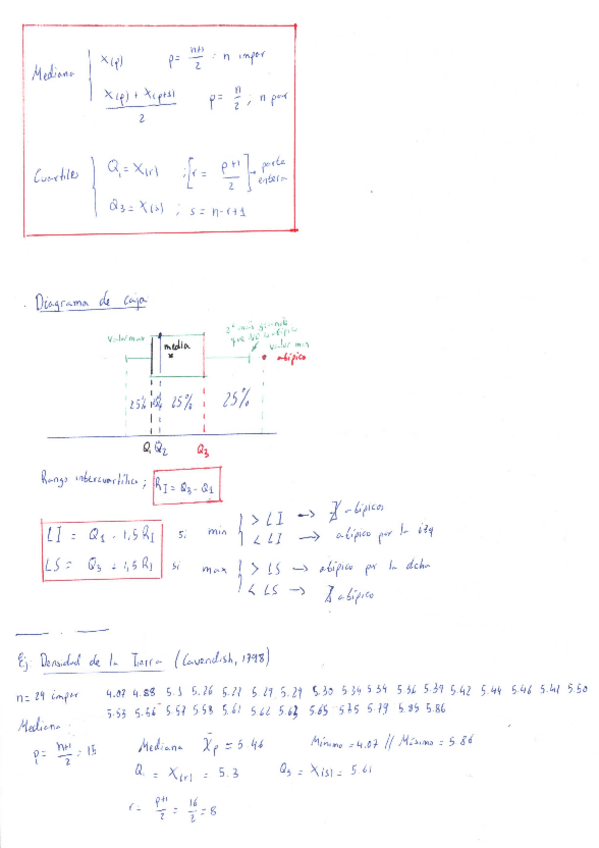 Mediana
X(p)   p = n+1/2 ; n impar
X(p) + X(p+1) / 2   p = n/2 ; n par
Cuartiles
Q1 = X(r) ; [r = p+1/2] → parte entera
Q3 = X(s) ; s = n-r+1
. Diagrama de caja
valor max
media
2º más grande
valor min
atípico
25% 25% 25%
Q1 Q2 Q3
Rango intercuartílico ; RI = Q3 - Q1
LI = Q1 - 1,5 RI   si min { > LI → ∄ atípicos
< LI → atípico por la izq
LS = Q3 + 1,5 RI   si max { > LS → atípico por la dcha
< LS → ∄ atípico
Ej Densidad de la Tierra (Cavendish, 1798)
n = 29 impar   4.07 4.88 5.1 5.26 5.27 5.29 5.29 5.30 5.34 5.34 5.36 5.39 5.42 5.44 5.46 5.47 5.50
5.53 5.56 5.57 5.58 5.61 5.62 5.63 5.65 5.75 5.79 5.85 5.86
Mediana :
p = n+1/2 = 15   Mediana Xp = 5.46   Mínimo = 4.07 // Máximo = 5.86
Q1 = X(r) = 5.3   Q3 = X(s) = 5.61
r = p+1/2 = 16/2 = 8